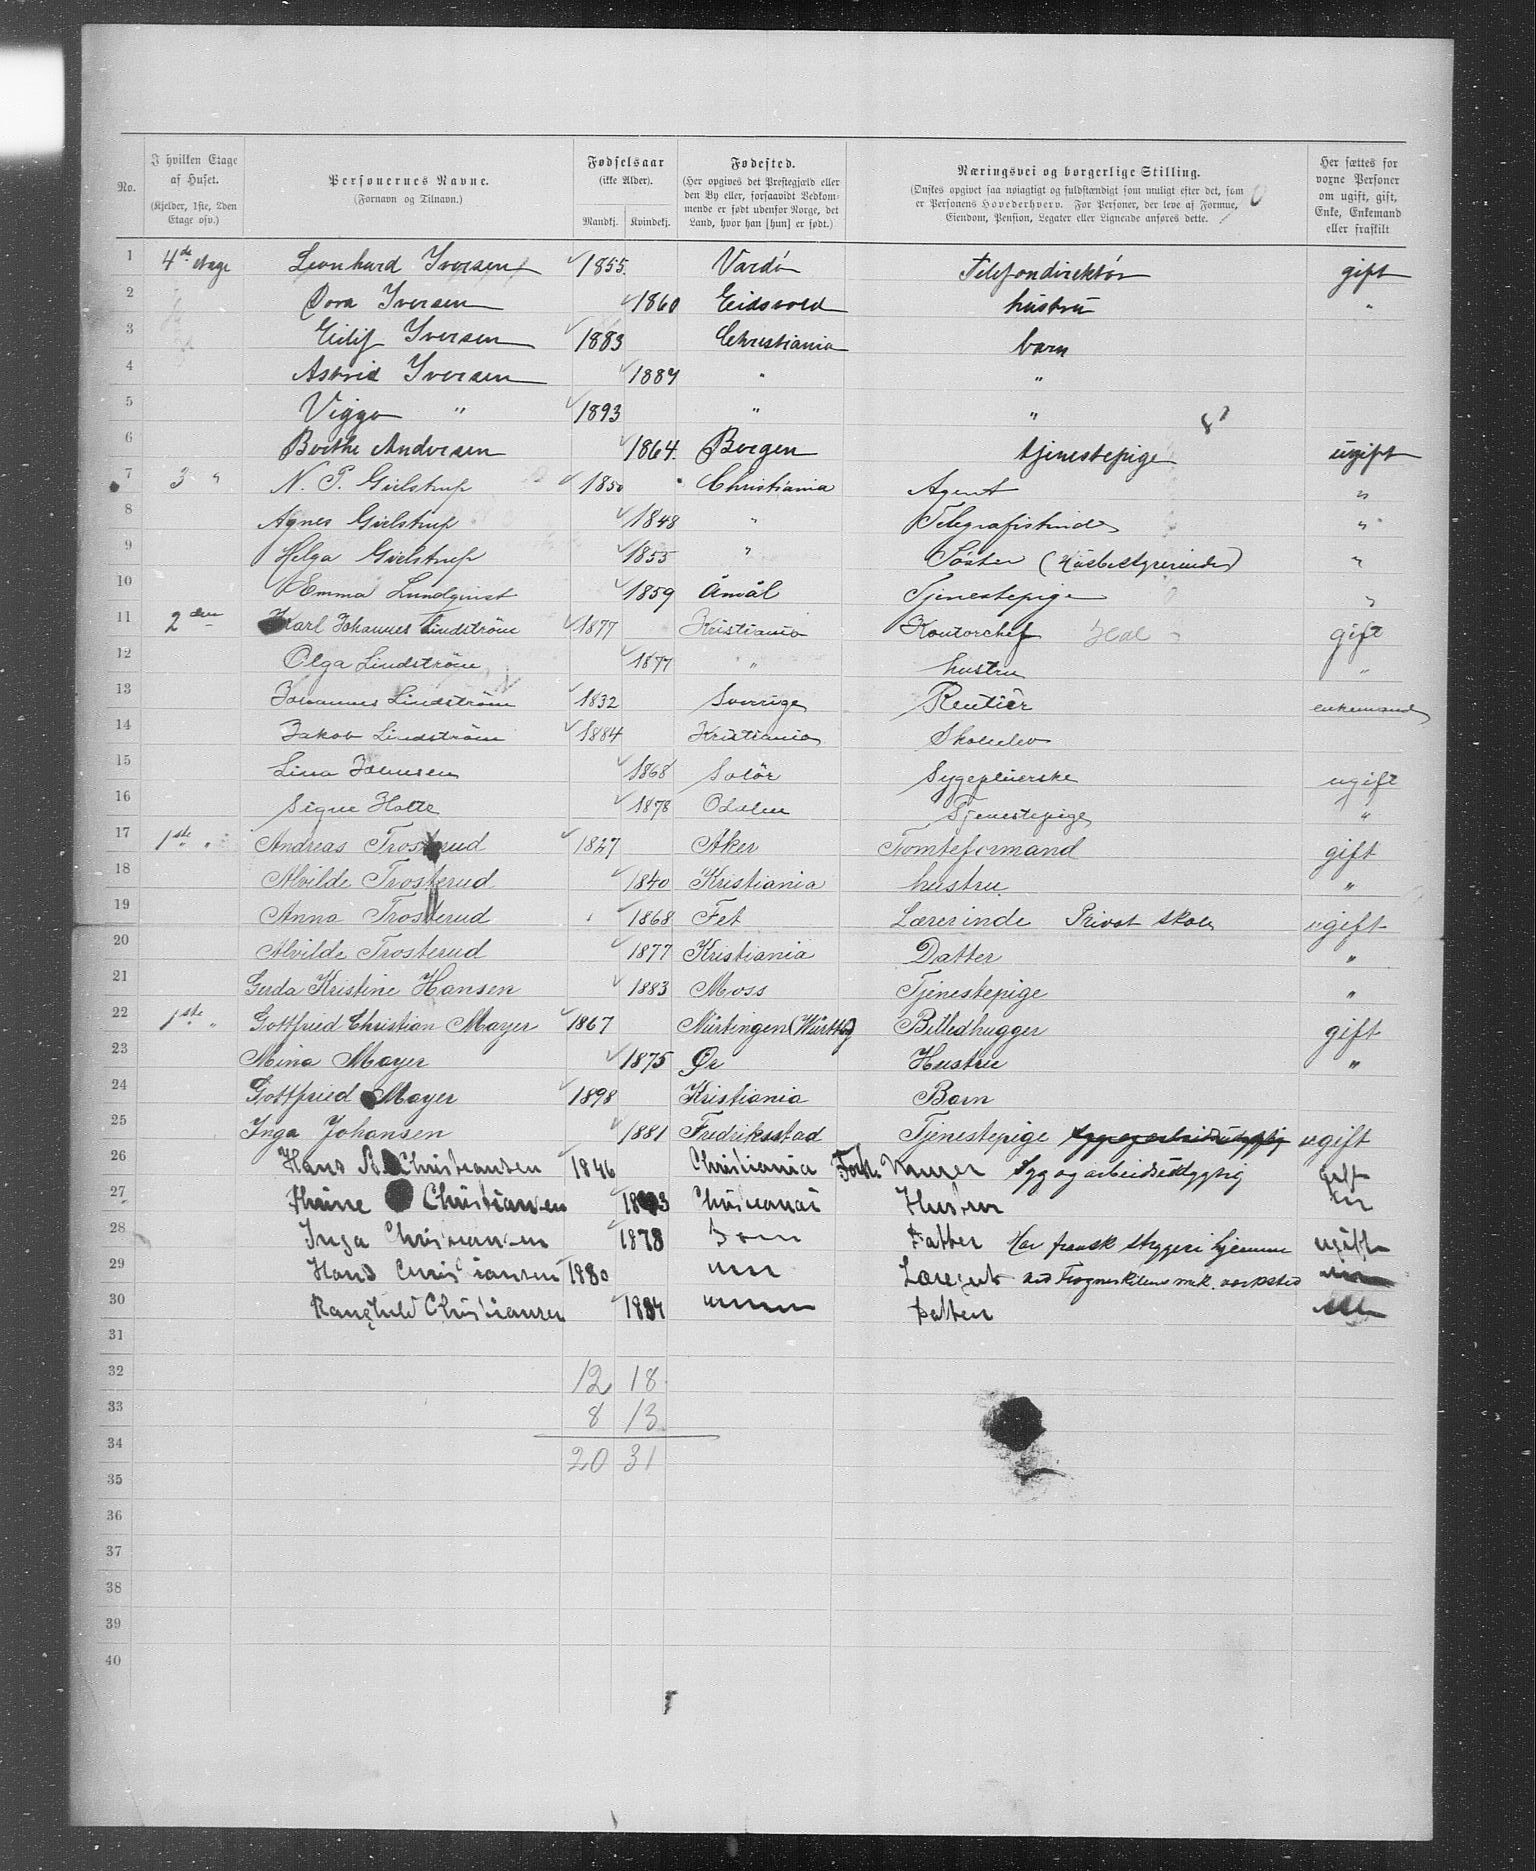 No.
I hvilken Etage af Huset. (Kjelder, 1ste, 2den Etage osv.)
Personernes Navne. (Fornavn og Tilnavn.)
Fødselsaar (ikke Alder). Mandkj. Kvindekj.
Fødested. (Her opgives det Prestegjæld eller den By eller, forsaavidt Vedkommende er født udenfor Norge, det Land, hvor han [hun] er født.)
Næringsvei og borgerlige Stilling. (Ønskes opgivet saa nøiagtigt og fuldstændigt som muligt efter det, som er Personens Hovederhverv. For Personer, der leve af Formue, Eiendom, Pension, Legater eller Lignende anføres dette.)
Her sættes for voxne Personer om ugift, gift, Enke, Enkemand eller fraskilt
1 4de etage Leonhard Iversen 1855 Vardö Telefondirektör gift
2 Dora Iversen 1860 Eidsvold hustru "
3 Eilif Iversen 1883 Christiania barn
4 Astrid Iversen 1887 " "
5 Viggo " 1893 " "
6 Berthe Andersen 1864 Bergen tjenestepige ugift
7 3 " N. P. Gielstrup 1850 Christiania Agent "
8 Agnes Gielstrup 1848 " Telegrafistinde "
9 Helga Gielstrup 1855 " Söster (Husbestyrerinde) "
10 Emma Lundqvist 1859 Åmål Tjenestepige "
11 2den Karl Johannes Lindström 1877 Kristiania Kontorchef gift
12 Olga Lindström 1877 " hustru "
13 Johannes Lindström 1832 Sverrige Rentièr enkemand
14 Jakob Lindström 1884 Kristiania Skoleelev
15 Lina Johnsen 1868 Solör Sygepleierske ugift
16 Signe Holte 1878 Odalen Tjenestepige "
17 1ste " Andreas Trosterud 1827 Aker Tomteformand gift
18 Alvilde Trosterud 1840 Kristiania hustru "
19 Anna Trosterud 1868 Fet Lærerinde Privat skole ugift
20 Alvilde Trosterud 1877 Kristiania Datter "
21 Gerda Kristine Hansen 1883 Moss Tjenestepige "
22 1ste " Gottfried Christian Mayer 1867 Nürtingen (Württbg) Billedhugger gift
23 Mina Mayer 1875 Ør Hustru "
24 Gottfried Mayer 1898 Kristiania Barn
25 Inga Johansen 1881 Fredriksstad Tjenestepige ugift
26 Hans B Christiansen 1846 Christiania Forh. Murer Syg og arbeidsudygtig gift
27 Christiansen Hustru
28 Inga Christiansen 1878 Som Datter Har fransk strygeri hjemme ugift
29 Hans Christiansen 1880 ved Frognerkilens mek. værksted
30 Ranghild Christiansen 1884 Datter
31
32 12 18
33 8 13
34 20 31
35
36
37
38
39
40